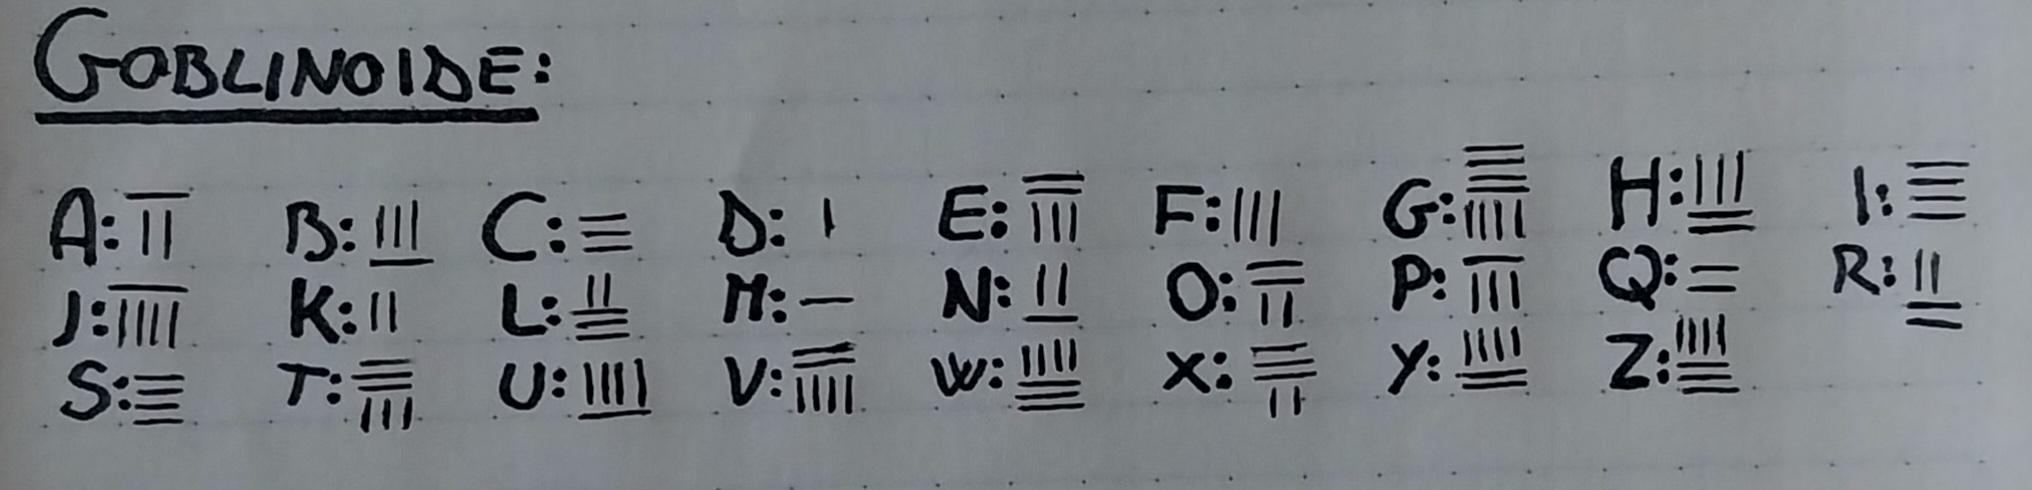 GOBLINOIDE:
A: B: C: D: E: F: G: H: I:
J: K: L: M: N: O: P: Q: R:
S: T: U: V: W: X: Y: Z: